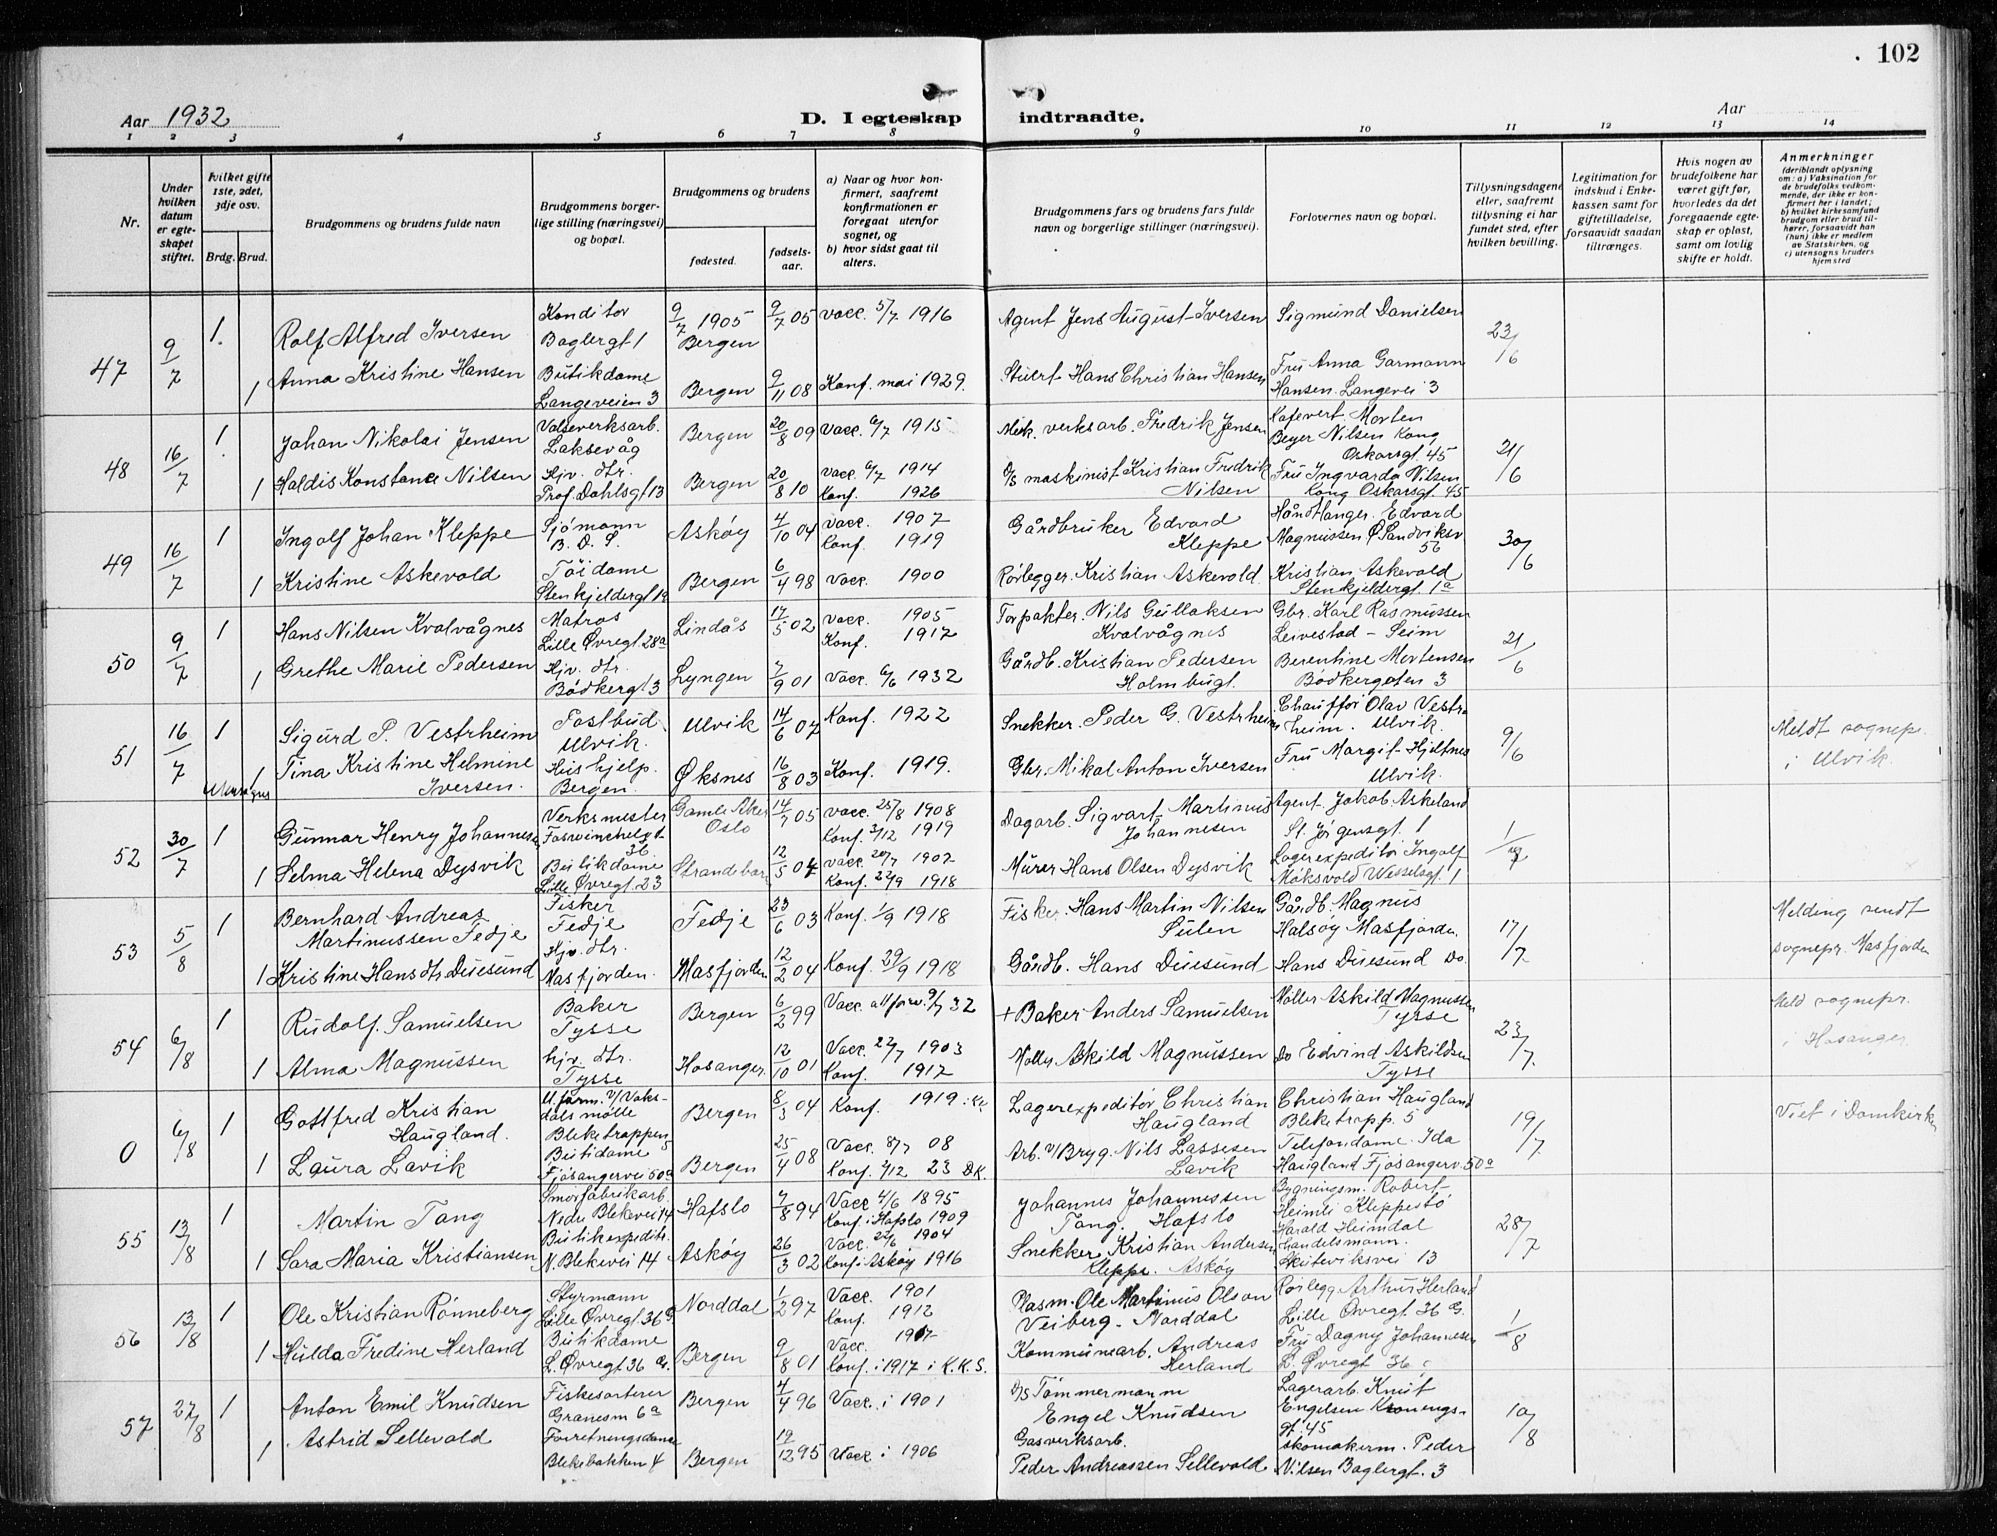 102
Aar 1932
D. I egteskap indtraadte.
Aar
1 2 3 4 5 6 7 8 9 10 11 12 13 14
Nr.
Under hvilken datum er egteskapet stiftet.
hvilket gifte 1ste, 2det, 3dje osv.
Brdg. Brud.
Brudgommens og brudens fulde navn
Brudgommens borgerlige stilling (næringsvei) og bopæl.
Brudgommens og brudens
fødested.
fødselsaar.
a) Naar og hvor konfirmert, saafremt konfirmationen er foregaat utenfor sognet, og
b) hvor sidst gaat til alters.
Brudgommens fars og brudens fars fulde navn og borgerlige stillinger (næringsvei).
Forlovernes navn og bopæl.
Tillysningsdagene eller, saafremt tillysning ei har fundet sted, efter hvilken bevilling.
Legitimation for indskud i Enkekassen samt for giftetilladelse, forsaavidt saadan tiltrænges.
Hvis nogen av brudefolkene har været gift før, hvorledes da det foregaaende egteskap er opløst, samt om lovlig skifte er holdt.
Anmerkninger (deriblandt oplysning om: a) Vaksination for de brudefolks vedkommende, der ikke er konfirmert her i landet; b) hvilket kirkesamfund brudgom eller brud tilhører, forsaavidt han (hun) ikke er medlem av Statskirken, og c) utensogns bruders hjemsted
47 9/7 1. Rolf Alfred Iversen Konditor Baglergt 1 9/7 1905 Bergen 9/7 05 Vacc. 5/7 1916 Agent Jens August Iversen Sigmund Danielsen 23/6
1 Anna Kristine Hansen Butikdame Langeveien 3 Bergen 9/11 08 Konf. mai 1929. Stuert Hans Christian Hansen Fru Anna Garmann Hansen. Langevei 3
48 16/7 1. Johan Nikolai Jensen Valseverksarb. Laksevåg Bergen 20/8 09 Vacc. 6/7 1915 Mek. verksarb. Fredrik Jensen Kafevert Morten Beyer Nilsen Kong Oskarsgt. 45 21/6
1 Haldis Konstance Nilsen Hjv. dtr. Prof. Dahlsgt 13 Bergen 20/8 10 Vacc. 6/7 1914 Konf. 1926 D/S maskinist Kristian Fredrik Nilsen Fru Ingvarda Nilsen Kong Oskarsgt. 45
49 16/7 1 Ingolf Johan Kleppe Sjømann B. D. S. Askøy 4/10 04 Vacc. 1907 Konf. 1919 Gårdbruker Edvard Kleppe Håndlanger. Edvard Magnussen Ø Sandviksv 56 30/6
1 Kristine Askevold Tøidame Stenkjeldergt 1a Bergen 6/4 98 Vacc. 1900 Rørlegger. Kristian Askevold Kristian Askevold Stenkjeldergt. 1a
50 9/7 1 Hans Nilsen Kvalvågnes Matros Lille Øvregt. 28a Lindås 17/5 02 Vacc. 1905 Konf. 1917 Torpakter. Nils Gullaksen Kvalvågnes Gbr. Karl Rasmussen Leivestad - Seim 21/6
1 Grethe Marie Pedersen Hjv. dtr. Bödkergt 3 Lyngen 7/9 01 Vacc. 6/6 1932 Gårdb. Kristian Pedersen Holmbugt. Berentine Mortensen Bödkergaten 3
51 16/7 1 Sigurd P. Vestrheim Postbud. Ulvik. Ulvik 14/6 07 Konf. 1922 Snekker. Peder G. Vestrheim Chauffør Olav Vestrheim. Ulvik. 9/6 Meldt sognepr. i Ulvik.
1 Tina Kristine Helmine Iversen. Hushjelp. Bergen. Øksnes 16/8 03 Konf. 1919. Gbr. Mikal Anton Iversen Fru Margit Hjeltnes Ulvik.
52 30/7 1 Gunnar Henry Johannesen Verksmester Fosswinckelgt. 36 Gamle Aker Oslo 14/7 05 Vacc. 25/8 1908 Konf. 7/12 1919 Dagarb. Sigvart Martinus Johannesen Agent. Jakob Askeland St. Jørgensgt. 1 1/7
1 Selma Helena Dysvik Butikdame Lille Øvregt. 23 Strandebarm 12/5 04 Vacc. 20/7 1907 Konf. 22/9 1918 Murer Hans Olsen Dysvik Lagerexpeditör Ingolf Moksvold Wesselsgt. 1
53 5/8 1 Bernhard Andreas Martinussen Fedje Fisker Fedje Fedje 23/6 03 Konf. 1/9 1918 Fisker. Hans Martin Nilsen Sulen Gårdb. Magnus Halsøy Masfjorden 17/7 Melding sendt sognepr. Masfjorden
1 Kristine Hansdtr Duesund Hjv. dtr. Masfjorden. Masfjorden 12/2 04 Konf. 29/9 1918 Gårdb. Hans Duesund Hans Duesund Do.
54 6/8 1 Rudolf. Samuelsen Baker Tysse Bergen 6/2 99 Vacc. 9/7 32 + Baker Anders Samuelsen Møller Askild Magnussen Tysse 23/7. Meld sognepr. i Hosanger
1 Alma Magnussen hjv. dtr. Tysse Hosanger. 12/10 01 Vacc. 22/7 1903 Konf. 1917 Møller Askild Magnussen Do Edvind Askildsen Tysse
0 6/8 1 Gottfred Kristian Haugland. V/Vaksdals mølle Bleketrappen 5 Bergen 8/3 04 Konf. 1919 Lagerexpeditör Christian Haugland Christian Haugland Bleketrapp. 5 19/7 Viet i Domkirken
1 Laura Lavik Butidame Fjøsangervei 50a Bergen 25/4 08 Vacc. 8/7 08 Konf. 2/12 23 D.K. Arb. v/Bryg. Nils Lassesen Lavik Telefondame. Ida Haugland Fjøsangerv. 50a
55 13/8 1 Martin Tang Smørfabrikarb. Nedre Blekevei 14 Hafslo 7/8 94 Vacc. 4/6 1895 Konf. i Hafslo 1909 Johannes Johannessen Tang. Hafslo Bygningsm. Robert Heimli Kleppestø 28/7
1 Sara Maria Kristiansen Butikexpeditr. N. Blekevei 14 Askøy 26/3 02 Vacc. 22/6 1904 Konf i Askøy 1916 Snekker Kristian Andersen Kleppe. Askøy Harald Heimdal handelsmann. Skuteviksvei 13
56 13/8 1 Ole Kristian Rønneberg Styrmann Lille Øvregt. 36 G. Norddal 1/2 97 Vacc. 1901 Konf. 1912 Plasm. Ole Martinus Olson Veiberg - Norddal Rørlegg Arthur Herland Lille Øvregt 36 G. 1/8
1 Hulda Fredine Herland Butikdame L. Øvregt 36 G. Bergen 9/8 01 Vacc. 1907 Konf. i 1917 i K.K.S. Kommunearb. Andreas Herland Fru Dagny Johannesen L. Øvregt 36 G
57 27/8 1 Anton Emil Knudsen Fiskesorterer Granesm 6a Bergen 4/4 96 Vacc. i 1901 D/S Tømmermann Engel Knudsen Lagerarb. Knut Engelsen Kronengsgt. 45 10/8
1 Astrid Sellevold Forretningsdame Blekebakken 4 Bergen 19/12 95 Vacc. i 1906 Gasverksarb. Peder Andreassen Sellevold Skomakerm. Peder Nilsen Baglergt. 3